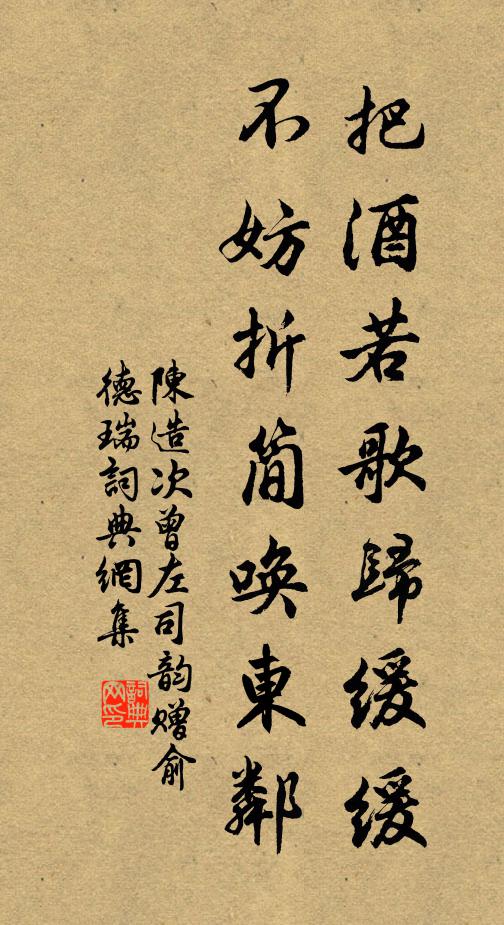 把酒若歌歸緩緩
不妨折簡喚東鄰
陳造次曾左司韵贈俞
德瑞詞典網集
詞典网印